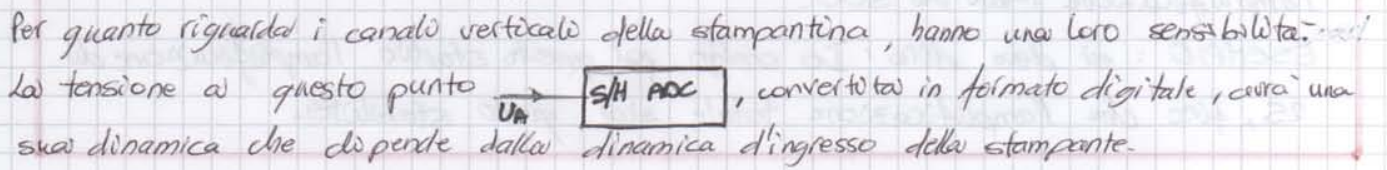 Per quanto riguarda i canali verticali della stampantina, hanno una loro sensibilità.
La tensione a questo punto U_A → S/H ADC, convertita in formato digitale, avrà una
sua dinamica che dipende dalla dinamica d'ingresso della stampante.